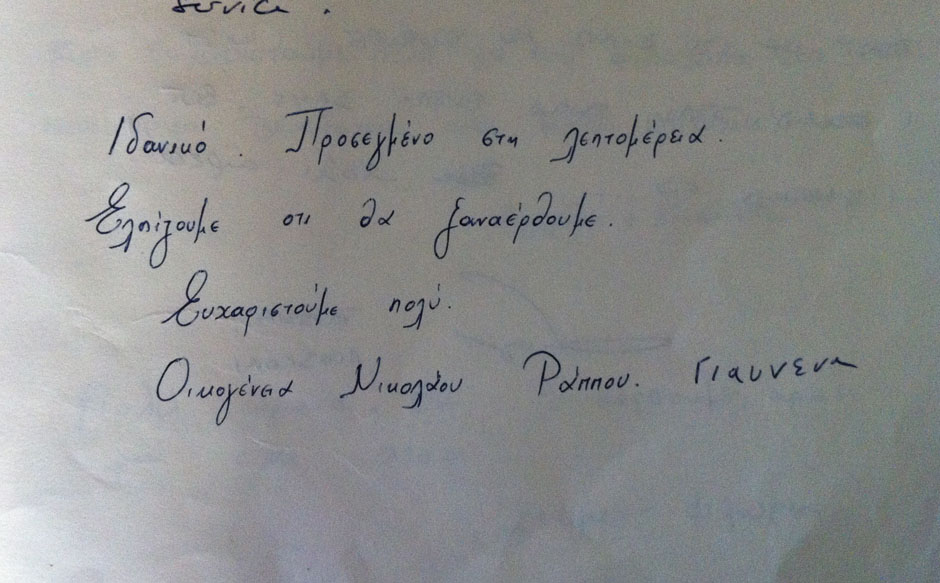 service.
Ιδανικό. Προσεγμένο στη λεπτομέρεια.
Ελπίζουμε οτι θα ξαναέρθουμε.
Ευχαριστούμε πολύ.
Οικογένεια Νικολάου Ράππου. Γιαννενα